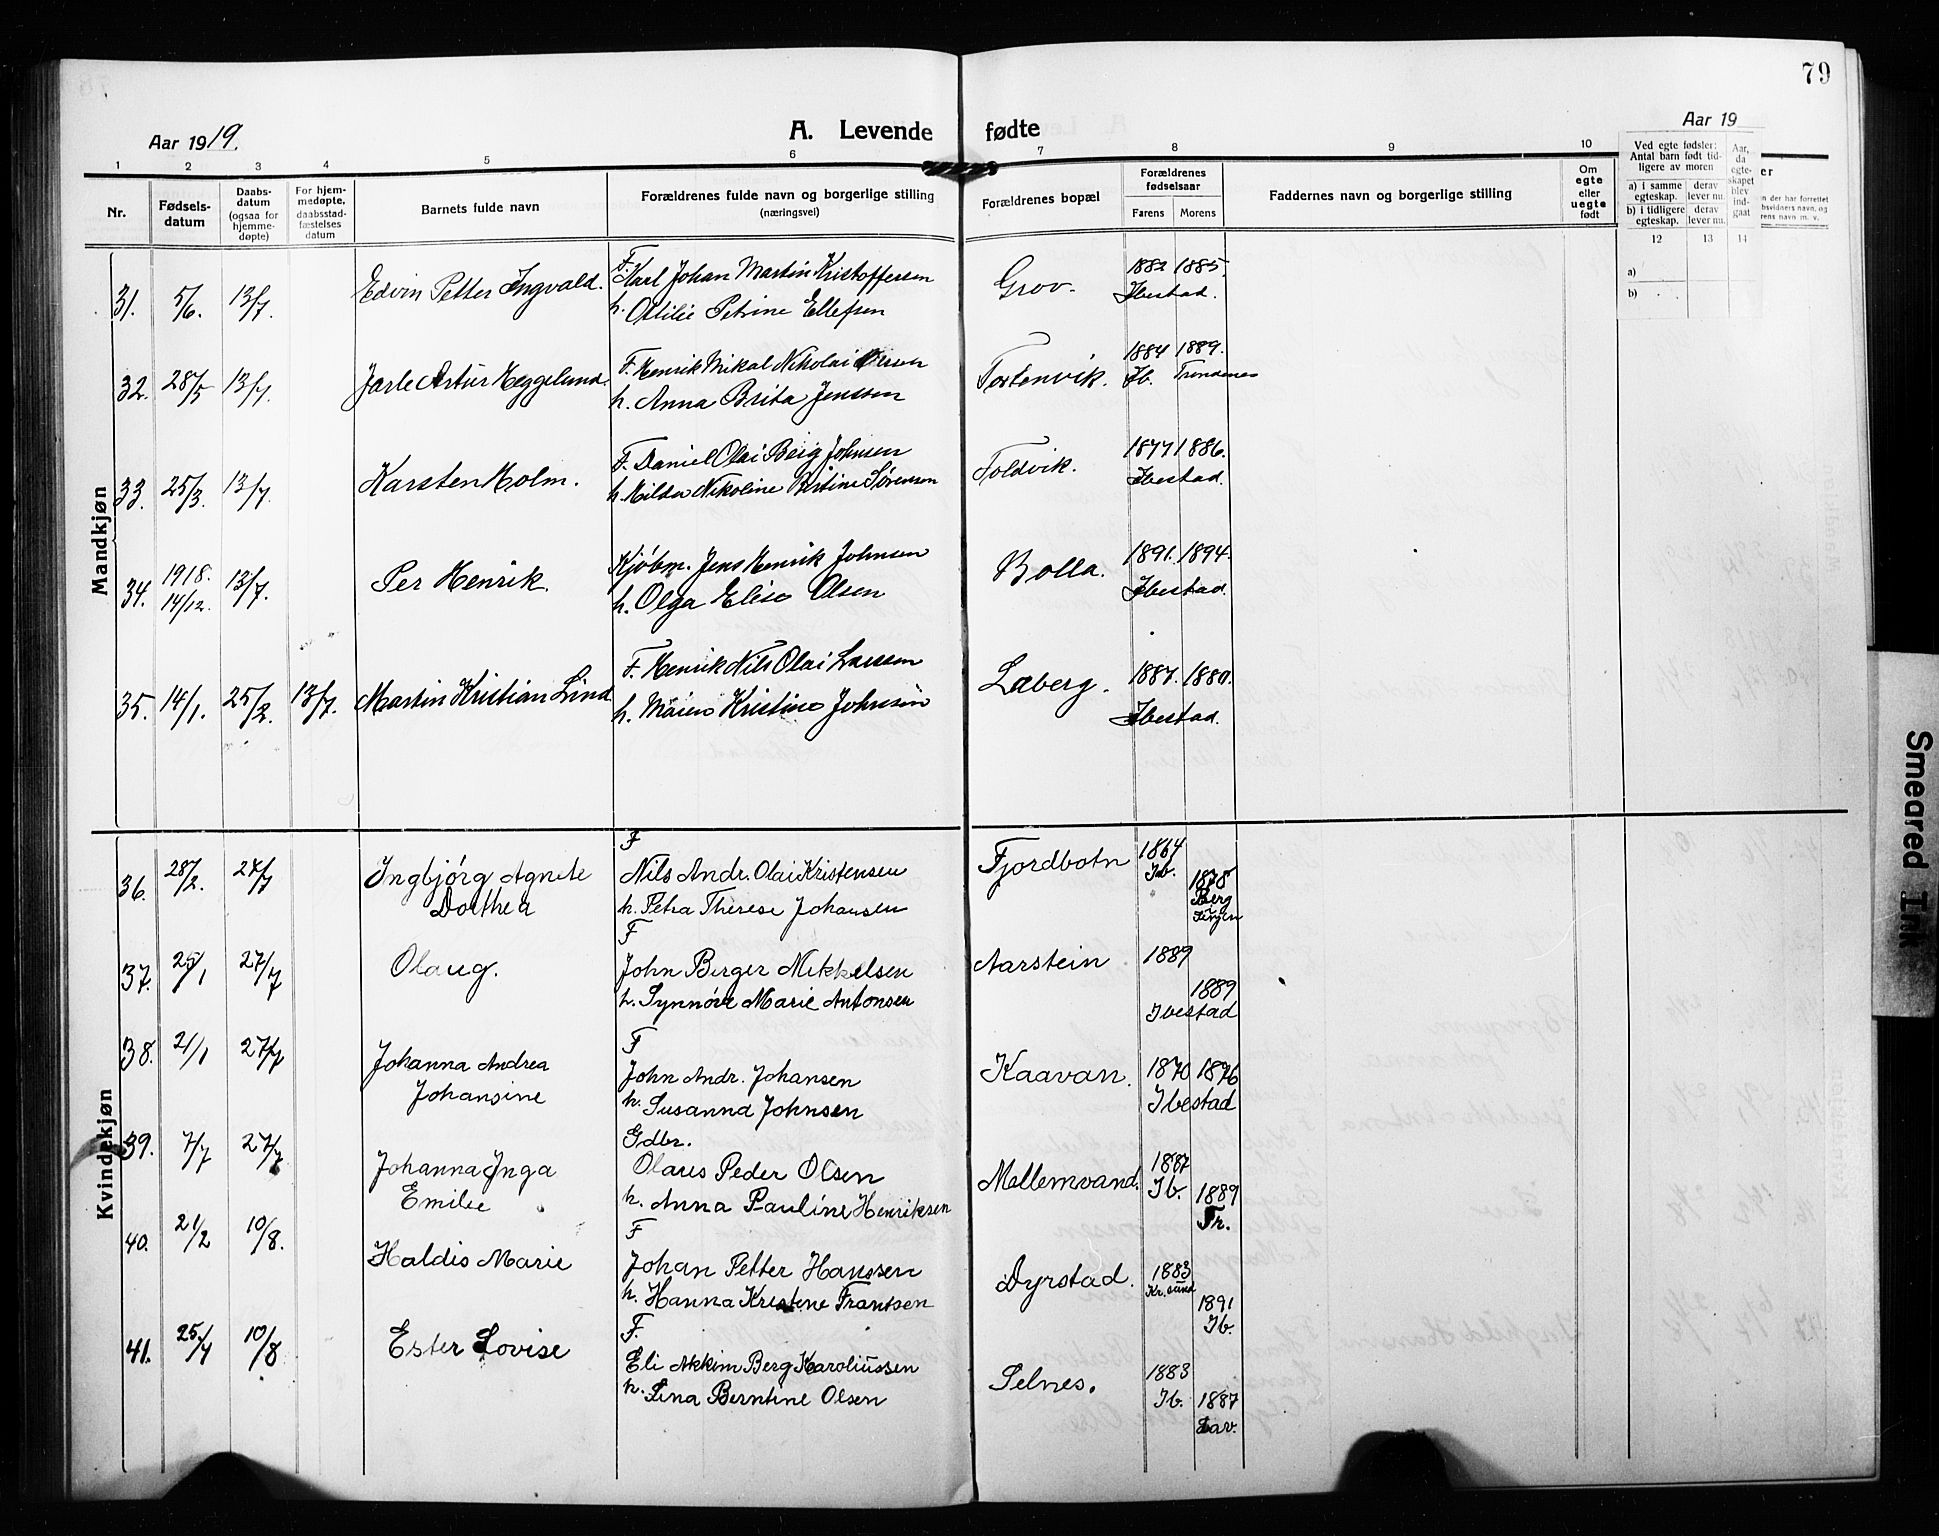 79
Aar 1919.
A. Levende fødte
Aar 19
1 2 3 4 5 6 7 8 9 10
Nr.
Fødsels-datum
Daabs-datum (ogsaa for hjemme-døpte)
For hjem-medøpte, daabsstad-fæstelses datum
Barnets fulde navn
Forældrenes fulde navn og borgerlige stilling
(næringsvei)
Forældrenes bopæl
Forældrenes fødselsaar
Farens Morens
Faddernes navn og borgerlige stilling
Om egte eller uegte født
Ved egte fødsler: Antal barn født tid-ligere av moren
a) i samme egteskap. derav lever nu.
b) i tidligere egteskap. derav lever nu.
Aar, da egte-skapet blev ind-gaat
12 13 14
a)
b)
er
n der har forrettet
bsvidners navn, og
rens navn m. v.
Mandkjøn
31. 5/6. 13/7. Edvin Petter Ingvald. F. Karl Johan Martin Kristoffersen Grov. 1882 1885.
h. Ottilie Petrine Ellefsen Ibestad.
32. 28/5 13/7. Jarle Artur Heggelund. F. Henrik Mikal Nikolai Olsen Tortenvik. 1884 1889.
h. Anna Brita Jenssen Ib. Trondenes
33. 25/3. 13/7. Karsten Holm. F. Daniel Olai Berg Johnsen Foldvik. 1877 1886.
h. Hilda Nikoline Bertine Sørensen Ibestad.
34. 1918. 14/12. 13/7. Per Henrik. Kjøbm. Jens Henrik Johnsen Bolla. 1891. 1894.
h. Olga Elise Olsen Ibestad.
35. 14/1. 25/2. 13/7. Martin Kristian Lind F. Henrik Nils Olai Larsen Laberg. 1887. 1880.
h. Maren Kristine Johnsen Ibestad.
Kvindekjøn
36. 28/2. 27/7 Ingbjørg Agnete Dorthea F
Nils Andr. Olai Kristensen Fjordbotn 1864 Ib.
h. Petra Therese Johansen 1878 Berg
37. 25/1 27/7 Olaug. F
John Berger Mikkelsen Aarstein 1889
h. Synnøve Marie Antonsen 1889
Ibestad
38. 2/1 27/7 Johanna Andrea Johansine F
John Andr. Johansen Kaavan. 1870 1876
h. Susanna Johnsen Ibestad
39. 7/7 27/7 Johanna Inga Emilie Gdbr.
Olaus Peder Olsen Mellemvand. 1887 Ib.
h. Anna Pauline Henriksen 1889 Tr.
40. 21/2 10/8. Haldis Marie F
Johan Petter Hanssen Dyrstad. 1883 Kr.sund
h. Hanna Kristine Frantsen 1891 Ib.
41. 25/4 10/8 Ester Lovise F.
Eli Akkim Berg Karoliussen Selnes. 1883 Ib.
h. Lina Berntine Olsen 1887 Lav.
Smeared Ink